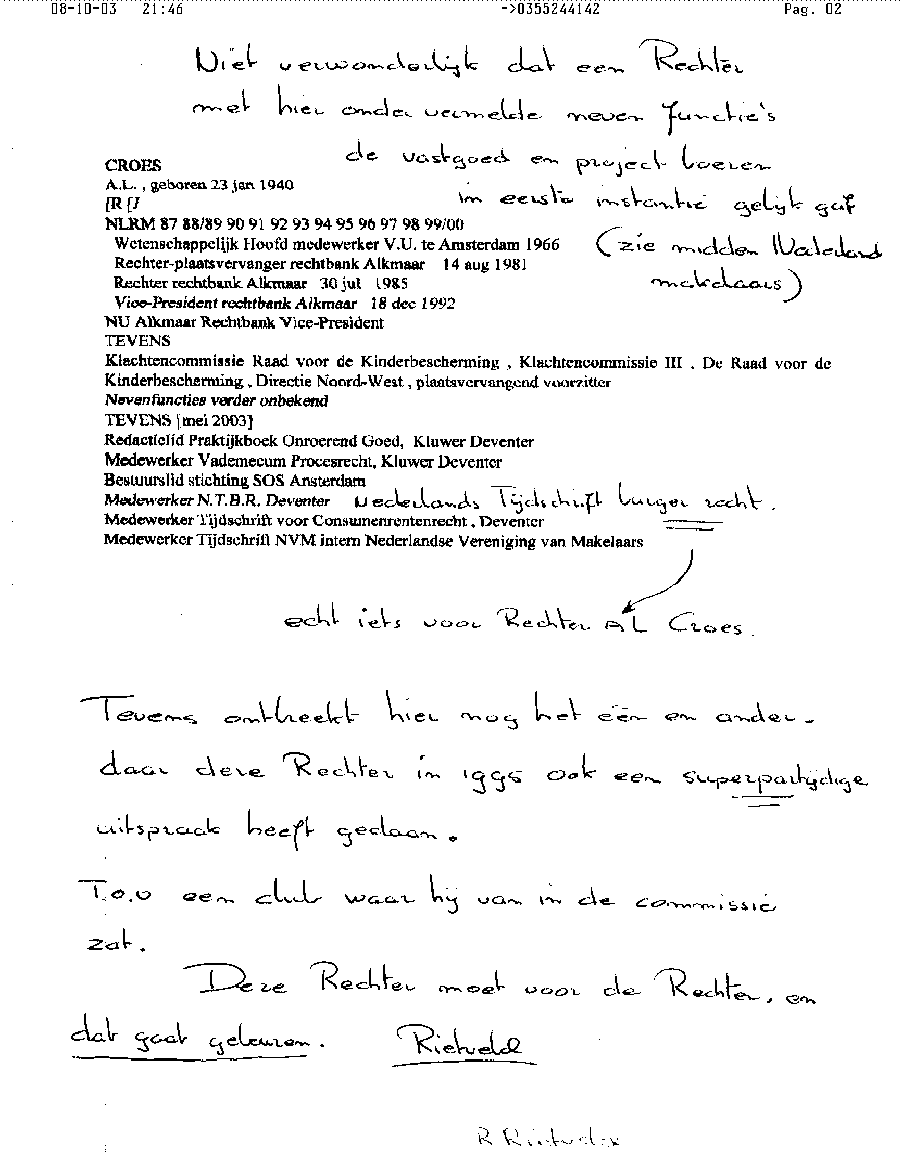 08-10-03 21:46 ->0355244142 Pag. 02
Niet verwonderlijk dat een Rechter
met hier onder vermelde neven functie's
de vastgoed en project boeren
in eerste instantie gelijk gaf
(zie midden Nederland
makelaars)
CROES
A.L. , geboren 23 jan 1940
[R [J
NLRM 87 88/89 90 91 92 93 94 95 96 97 98 99/00
Wetenschappelijk Hoofd medewerker V.U. te Amsterdam 1966
Rechter-plaatsvervanger rechtbank Alkmaar 14 aug 1981
Rechter rechtbank Alkmaar 30 jul 1985
Vice-President rechtbank Alkmaar 18 dec 1992
NU Alkmaar Rechtbank Vice-President
TEVENS
Klachtencommissie Raad voor de Kinderbescherming , Klachtencommissie III , De Raad voor de
Kinderbescherming , Directie Noord-West , plaatsvervangend voorzitter
Nevenfuncties verder onbekend
TEVENS [mei 2003]
Redactielid Praktijkboek Onroerend Goed, Kluwer Deventer
Medewerker Vademecum Procesrecht, Kluwer Deventer
Bestuurslid stichting SOS Amsterdam
Medewerker N.T.B.R. Deventer Nederlands Tijdschrift burger recht.
Medewerker Tijdschrift voor Consumenrentenrecht , Deventer
Medewerker Tijdschrift NVM intern Nederlandse Vereniging van Makelaars
echt iets voor Rechter AL Croes.
Tevens ontbreekt hier nog het één en ander.
daar deze Rechter in 1995 ook een superpartijdige
uitspraak heeft gedaan.
T.o.v een club waar hij van in de commissie
zat.
Deze Rechter moet voor de Rechter, en
dat gaat gebeuren. Rietveld
R Rietveld